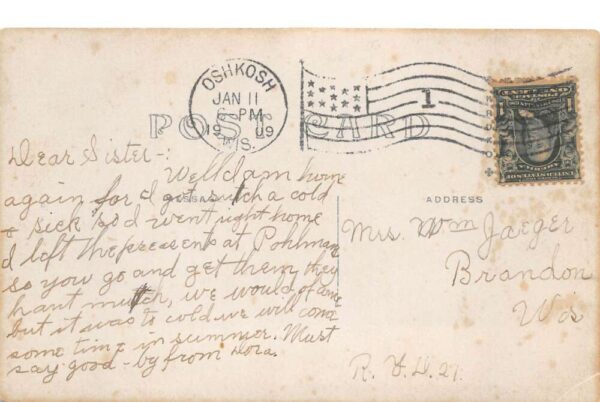 OSHKOSH
JAN 11
PM
1909
WIS.
1
POST CARD
Dear Sister-:
Well I am home
again for I got such a cold
& sick so I went right home
I left the presents at Pohlman
so you go and get them they
hant much, we would of come
but it was to cold we will come
some time in summer. Must
say good-by from Dora.
MESSAGE
ADDRESS
Mrs. Wm Jaeger
Brandon
Wis
R. F. D. 21.